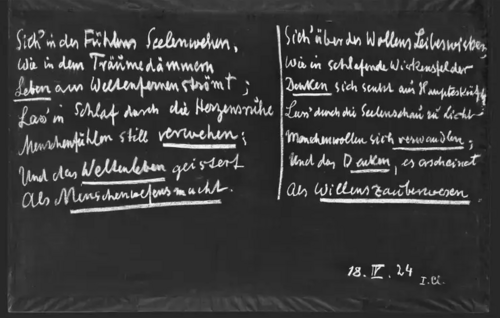 Sieh' in des Fühlens Seelenwehen,
Wie in dem Träumedämmern
Leben aus Weltenfernen strömt;
Lass in Schlaf durch die Herzensruhe
Menschenfühlen still verwehen;
Und das Weltenleben geistert
Als Menschenwesensmacht.
Sieh' über des Wollens Leibeswirken,
Wie in schlafende Wirkensfelder
Denken sich senkt aus Haupteskräften
Lass' durch die Seelenschau zu Licht
Menschenwollen sich verwandeln;
Und das Denken, es erscheinet
Als Willenszauberwesen.
18. IV. 24